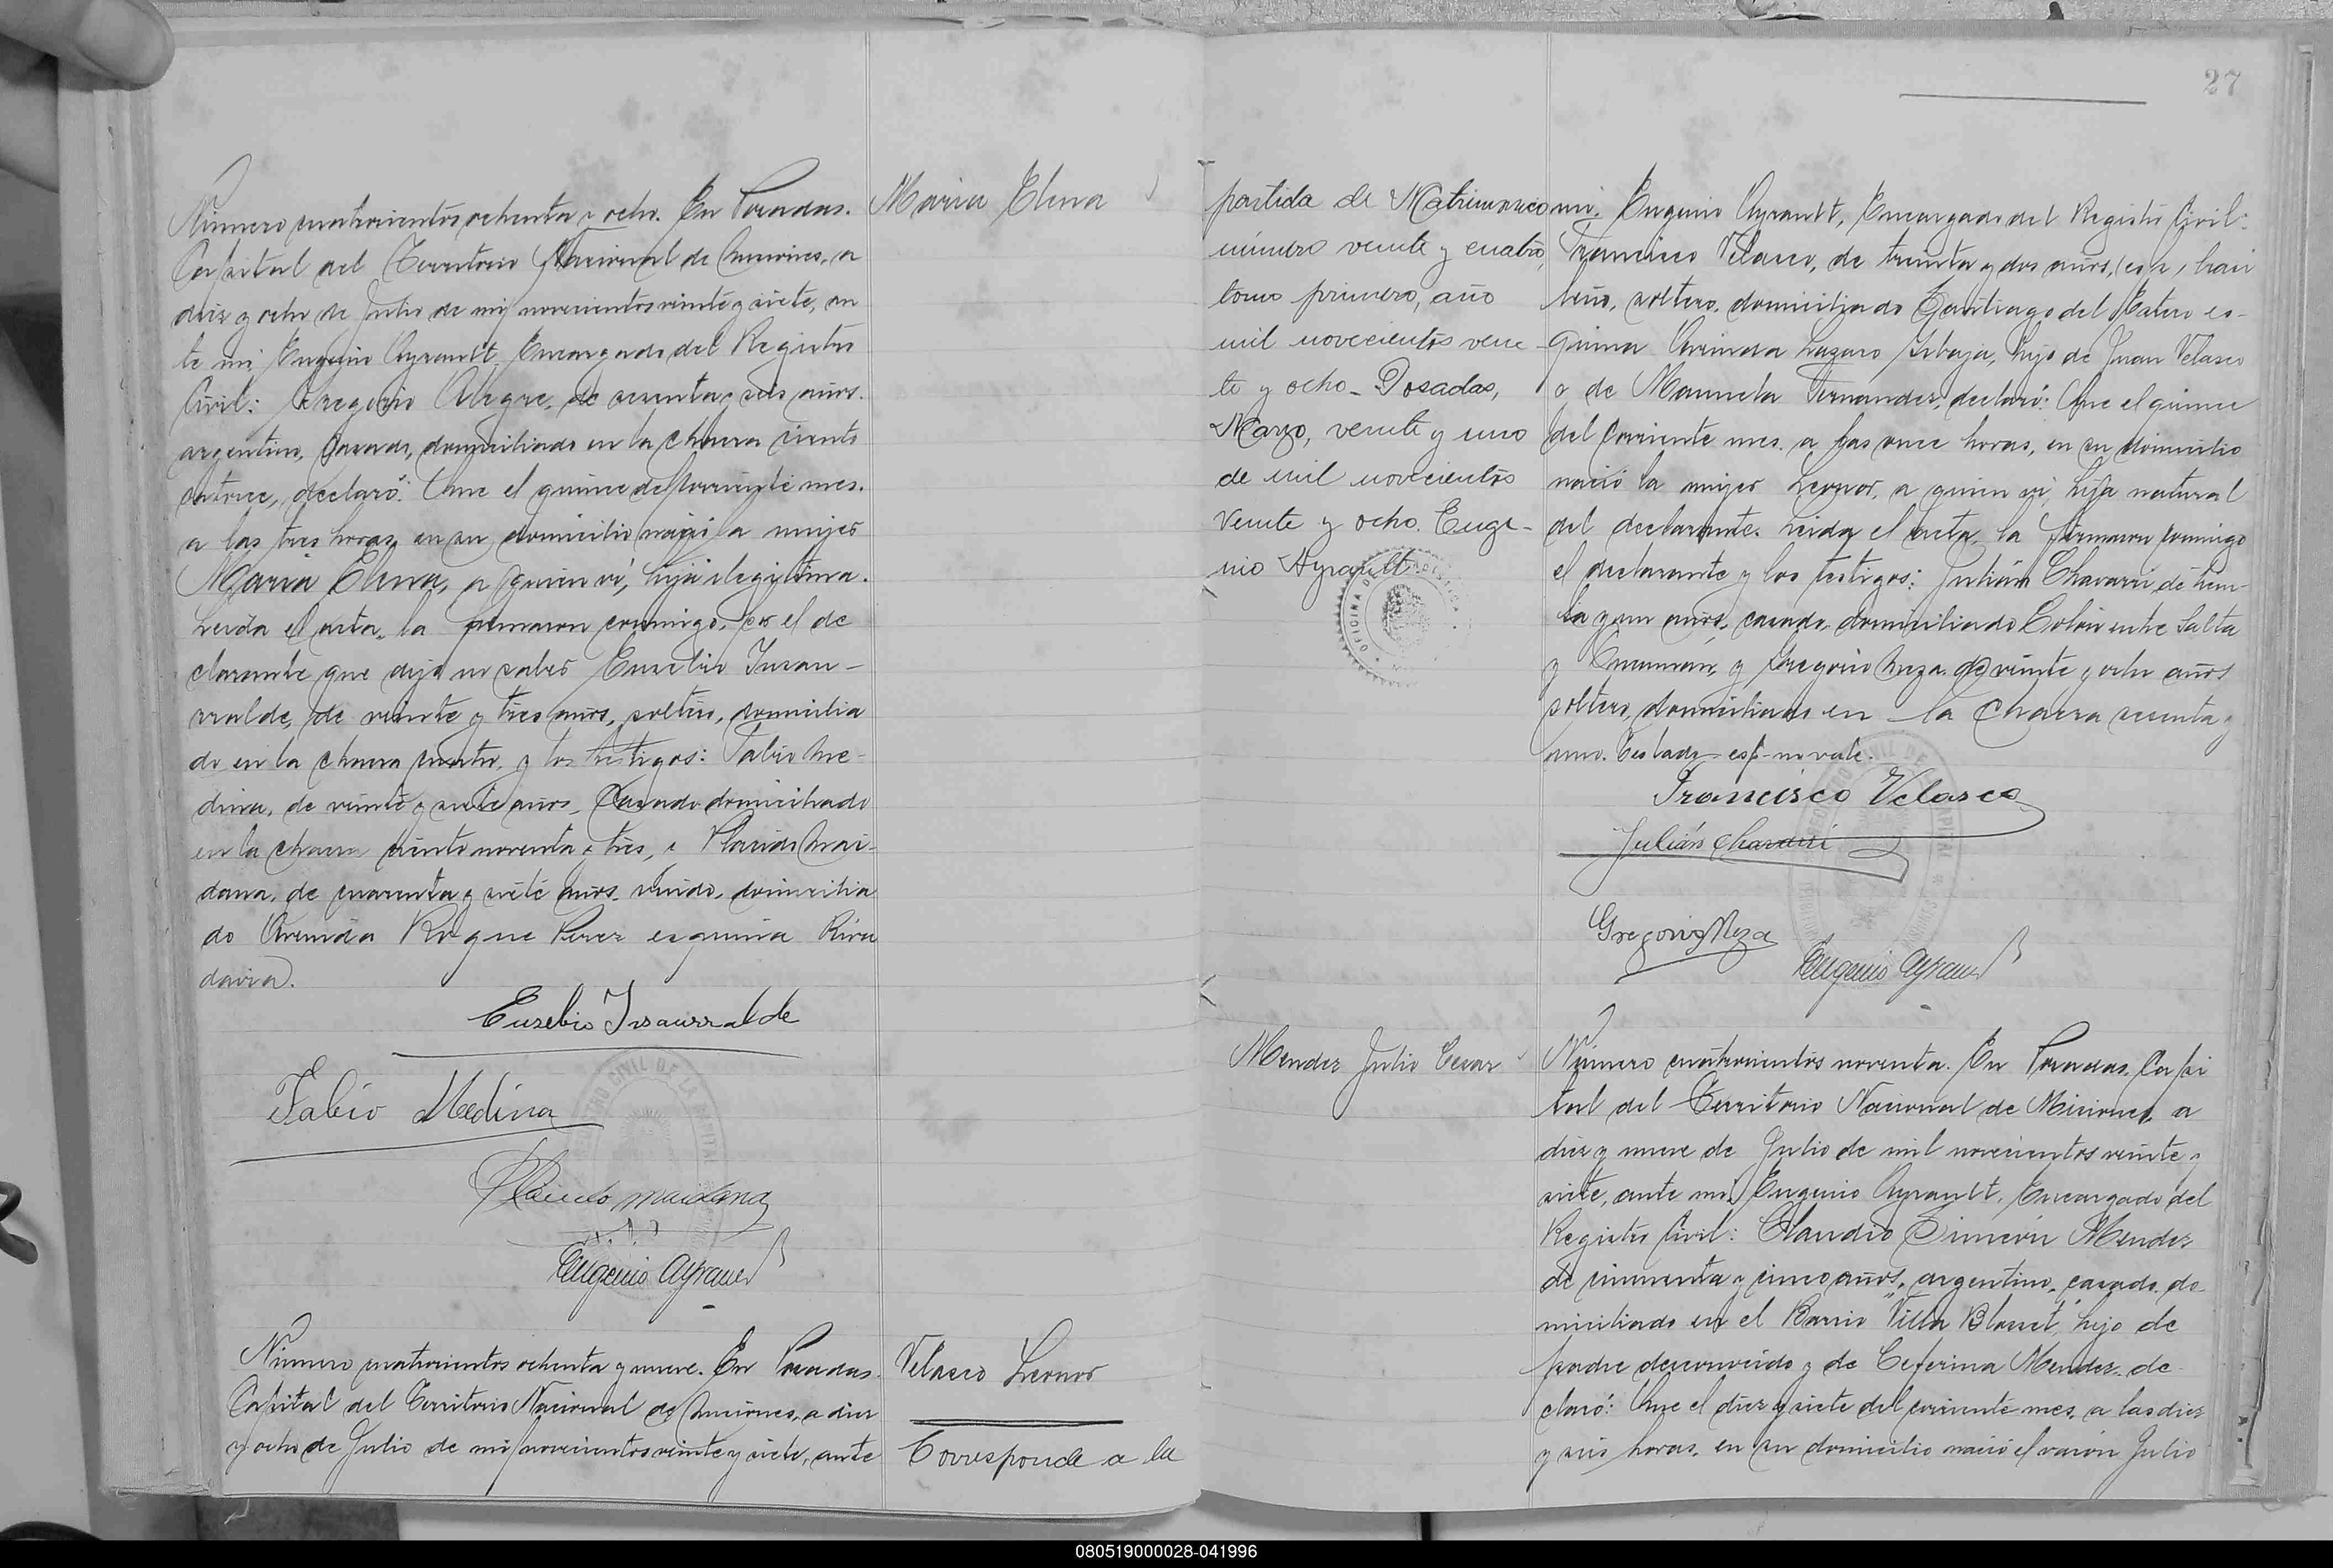 Número cuatrocientos ochenta y ocho. En Posadas.
Capital del Territorio Nacional de Misiones, a
diez y ocho de Julio de mil novecientos veinte y siete, an
te mi Eugenio Ayrault, Encargado del Registro
Civil: Gregorio Alegre, de sesenta y seis años.
argentino, casado, domiciliado en la chacra ciento
catorce, declaró: Que el quince del corriente mes.
a las tres horas, en su domicilio nació la mujer
Maria Elena, a quien vi, hija ilegitima.
Leida el acta, la firmaron conmigo, por el de
clarante que dijo no saber Eusebio Insau-
rralde, de veinte y tres años, soltero, domicilia
do en la chacra ciento y los testigos: Fabio Me-
dina, de veinte y siete años, casado domiciliado
en la chacra ciento noventa y tres, y Placido Mai-
dana, de cuarenta y siete años, viudo, domicilia
do Avenida Roque Perez esquina Riva
davia.
Maria Elena
Eusebio Insaurralde
Fabio Medina
Placido Maidana
Eugenio Ayrault
Número cuatrocientos ochenta y nueve. En Posadas.
Capital del Territorio Nacional de Misiones, a diez
y ocho de Julio de mil novecientos veinte y siete, ante
Velasco Leonor
Corresponde a la
27
partida de Matrimonio
número veinte y cuatro,
tomo primero, año
mil novecientos vein-
te y ocho - Posadas,
Marzo, veinte y uno
de mil novecientos
veinte y ocho. Euge-
nio Ayrault
mi. Eugenio Ayrault, Encargado del Registro Civil:
Francisco Velasco, de treinta y dos años, (esp,) brasi
leño, soltero, domiciliado Santiago del Estero es-
quina Avenida Lazaro Gibaja, hijo de Juan Velasco
y de Manuela Fernandez, declaró: Que el quince
del corriente mes, a las once horas, en su domicilio
nació la mujer Leonor, a quien vi, hija natural
del declarante. Leida el acta, la firmaron conmigo
el declarante y los testigos: Julián Chavarri de trein-
ta y un años, casado, domiciliado Colón entre Salta
y Tucumán, y Gregorio Meza de veinte y ocho años
soltero, domiciliado en la chacra sesenta y
uno. Testado - esp - no vale.
Francisco Velasco
Julián Chavarri
Gregorio Meza
Eugenio Ayrault
Mendez Julio Cesar
Número cuatrocientos noventa. En Posadas, Capi
tal del Territorio Nacional de Misiones, a
diez y nueve de Julio de mil novecientos veinte y
siete, ante mi, Eugenio Ayrault, Encargado del
Registro Civil: Claudio Simeón Mendez
de cincuenta y cinco años, argentino, casado, do
miciliado en el Barrio "Villa Blosset", hijo de
padre desconocido y de Ceferina Mendez, de
claró: Que el diez y siete del corriente mes, a las diez
y seis horas, en su domicilio nació el varón Julio
080519000028-041996